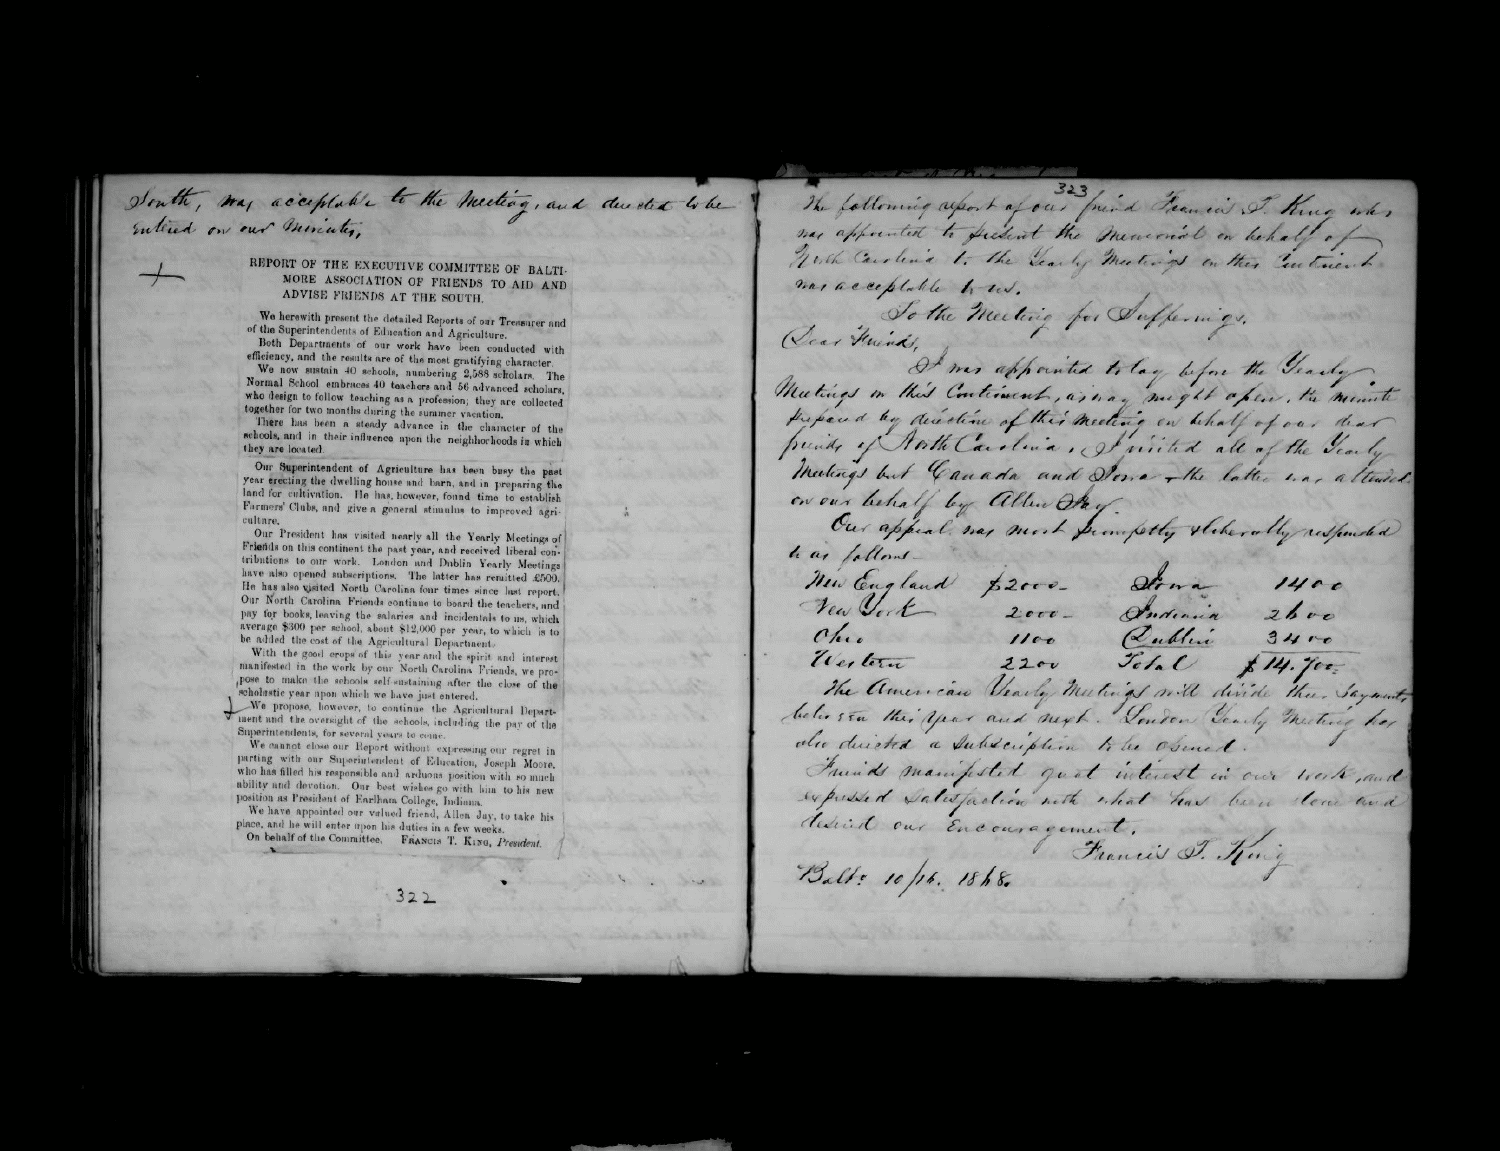 South, was acceptable to the Meeting, and directed to be
entered on our Minutes,
REPORT OF THE EXECUTIVE COMMITTEE OF BALTI-
MORE ASSOCIATION OF FRIENDS TO AID AND
ADVISE FRIENDS AT THE SOUTH.
We herewith present the detailed Reports of our Treasurer and
of the Superintendents of Education and Agriculture.
Both Departments of our work have been conducted with
efficiency, and the results are of the most gratifying character.
We now sustain 40 schools, numbering 2,588 scholars. The
Normal School embraces 40 teachers and 56 advanced scholars,
who design to follow teaching as a profession; they are collected
together for two months during the summer vacation.
There has been a steady advance in the character of the
schools, and in their influence upon the neighborhoods in which
they are located.
Our Superintendent of Agriculture has been busy the past
year erecting the dwelling house and barn, and in preparing the
land for cultivation. He has, however, found time to establish
Farmers' Clubs, and give a general stimulus to improved agri-
culture.
Our President has visited nearly all the Yearly Meetings of
Friends on this continent the past year, and received liberal con-
tributions to our work. London and Dublin Yearly Meetings
have also opened subscriptions. The latter has remitted £500.
He has also visited North Carolina four times since last report.
Our North Carolina Friends continue to board the teachers, and
pay for books, leaving the salaries and incidentals to us, which
average $300 per school, about $12,000 per year, to which is to
be added the cost of the Agricultural Department.
With the good crops of this year and the spirit and interest
manifested in the work by our North Carolina Friends, we pro-
pose to make the schools self-sustaining after the close of the
scholastic year upon which we have just entered.
We propose, however, to continue the Agricultural Depart-
ment and the oversight of the schools, including the pay of the
Superintendents, for several years to come.
We cannot close our Report without expressing our regret in
parting with our Superintendent of Education, Joseph Moore,
who has filled his responsible and arduous position with so much
ability and devotion. Our best wishes go with him to his new
position as President of Earlham College, Indiana.
We have appointed our valued friend, Allen Jay, to take his
place, and he will enter upon his duties in a few weeks.
On behalf of the Committee. FRANCIS T. KING, President.
322
323
The following report of our friend Francis T. King who
was appointed to present the Memorial on behalf of
North Carolina to the Yearly Meetings on this Continent
was acceptable to us.
To the Meeting for Sufferings.
Dear Friends,
I was appointed to lay before the Yearly
Meetings on this Continent, as way might open, the minute
prepared by direction of this meeting on behalf of our dear
friends of North Carolina. I visited all of the Yearly
Meetings but Canada and Iowa - the latter was attended
on our behalf by Allen Jay.
Our appeal was most promptly & liberally responded
to as follows-
New England $2000- Iowa 1400
New York 2000- Indiana 2600
Ohio 1100 Dublin 3400
Western 2200 Total $14.700=
The American Yearly Meetings will divide their payments
between this year and next. London Yearly Meeting has
also directed a subscription to be opened.
Friends manifested great interest in our work, and
expressed satisfaction with what has been done and
desired our Encouragement.
Francis T. King
Balto 10/16. 1868.